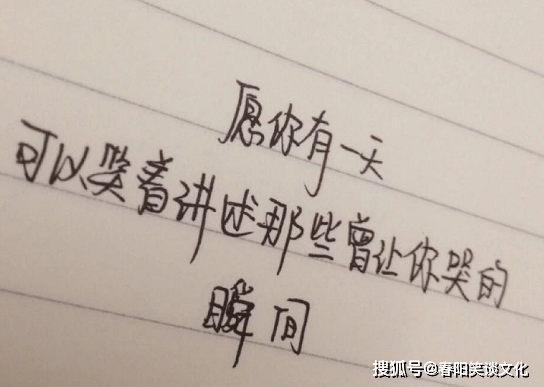 愿你有一天
可以笑着讲述那些曾让你哭的
瞬间
搜狐号@春阳笑谈文化